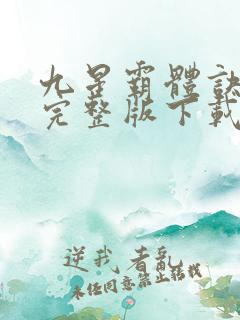 九星霸體訣
完整版下載
逆我者亂
未经同意禁止转载